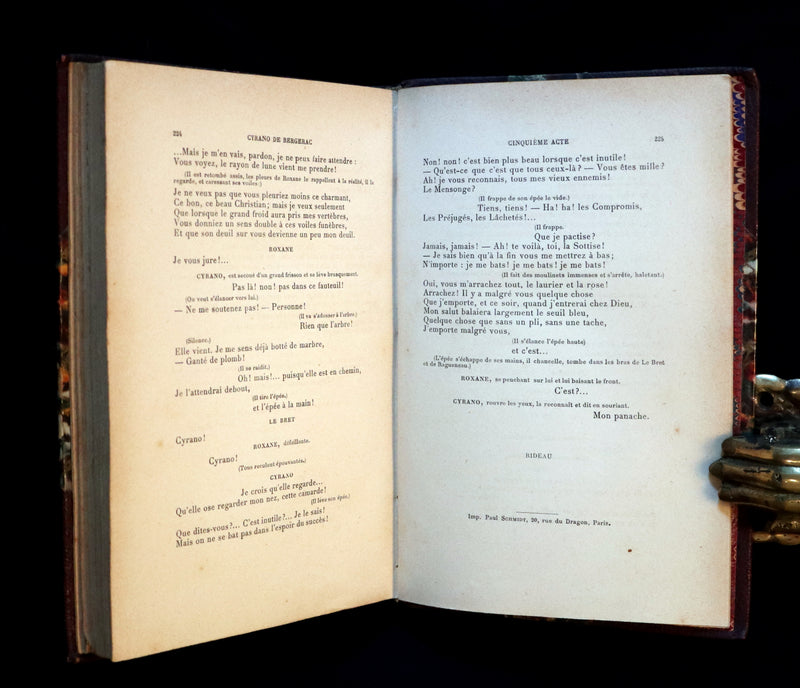 224
CYRANO DE BERGERAC
...Mais je m'en vais, pardon, je ne peux faire attendre :
Vous voyez, le rayon de lune vient me prendre!
(Il est retombé assis, les pleurs de Roxane le rappellent à la réalité, il la
regarde, et caressant ses voiles :)
Je ne veux pas que vous pleuriez moins ce charmant,
Ce bon, ce beau Christian; mais je veux seulement
Que lorsque le grand froid aura pris mes vertèbres,
Vous donniez un sens double à ces voiles funèbres,
Et que son deuil sur vous devienne un peu mon deuil.
ROXANE
Je vous jure!...
CYRANO, est secoué d'un grand frisson et se lève brusquement.
Pas là! non! pas dans ce fauteuil!
(On veut s'élancer vers lui.)
— Ne me soutenez pas! — Personne!
(Il va s'adosser à l'arbre.)
Rien que l'arbre!
(Silence.)
Elle vient. Je me sens déjà botté de marbre,
— Ganté de plomb!
(Il se raidit.)
Oh! mais!... puisqu'elle est en chemin,
Je l'attendrai debout,
(Il tire l'épée.)
et l'épée à la main!
LE BRET
Cyrano!
ROXANE, défaillante.
Cyrano!
(Tous reculent épouvantés.)
CYRANO
Je crois qu'elle regarde...
Qu'elle ose regarder mon nez, cette camarde!
(Il lève son épée.)
Que dites-vous?... C'est inutile?... Je le sais!
Mais on ne se bat pas dans l'espoir du succès!
CINQUIÈME ACTE
225
Non! non! c'est bien plus beau lorsque c'est inutile!
— Qu'est-ce que c'est que tous ceux-là? — Vous êtes mille?
Ah! je vous reconnais, tous mes vieux ennemis!
Le Mensonge?
(Il frappe de son épée le vide.)
Tiens, tiens! — Ha! ha! les Compromis,
Les Préjugés, les Lâchetés!...
(Il frappe.)
Que je pactise?
Jamais, jamais! — Ah! te voilà, toi, la Sottise!
— Je sais bien qu'à la fin vous me mettrez à bas;
N'importe : je me bats! je me bats! je me bats!
(Il fait des moulinets immenses et s'arrête, haletant.)
Oui, vous m'arrachez tout, le laurier et la rose!
Arrachez! Il y a malgré vous quelque chose
Que j'emporte, et ce soir, quand j'entrerai chez Dieu,
Mon salut balaiera largement le seuil bleu,
Quelque chose que sans un pli, sans une tache,
J'emporte malgré vous,
(Il s'élance l'épée haute)
et c'est...
(L'épée s'échappe de ses mains, il chancelle, tombe dans les bras de Le Bret
et de Ragueneau.)
ROXANE, se penchant sur lui et lui baisant le front.
C'est?...
CYRANO, rouvre les yeux, la reconnaît et dit en souriant.
Mon panache.
RIDEAU
Imp. Paul SCHMIDT, 20, rue du Dragon, Paris.